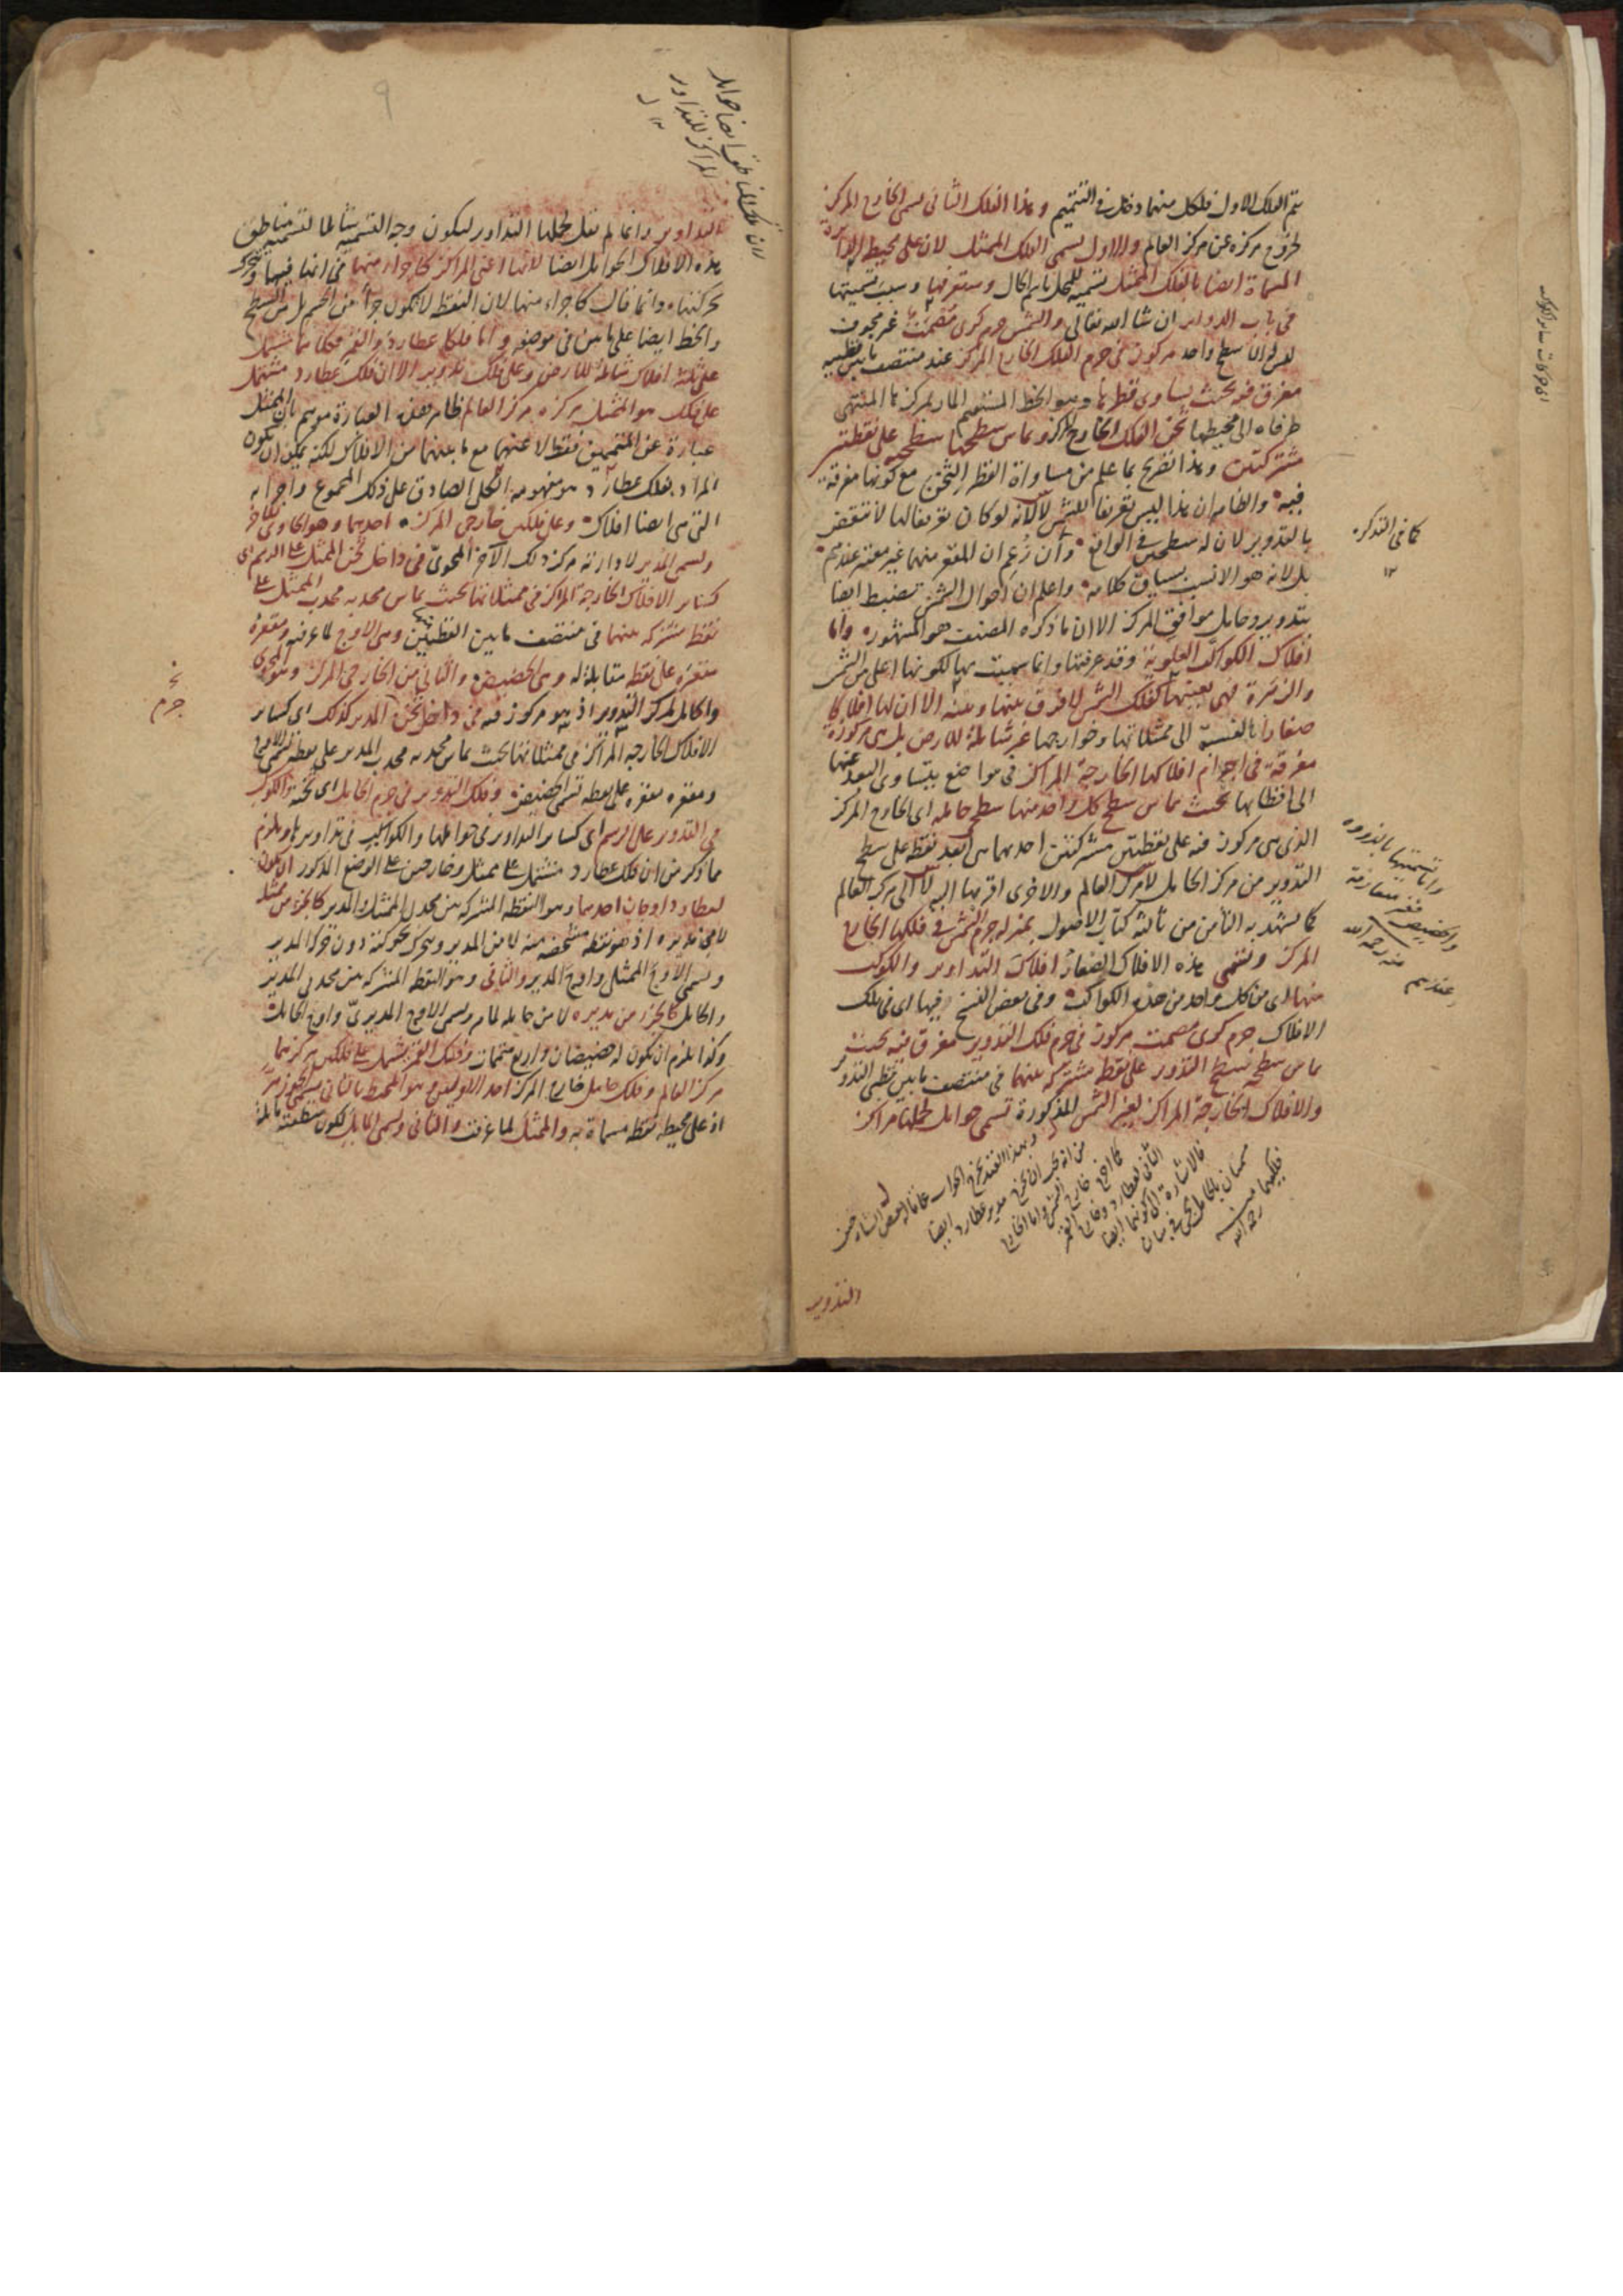 يتم الفلك الاول فلكل منهما دخل في التتميم وهذا الفلك الثاني يسمى الخارج المركز
لخروج مركزه عن مركز العالم والاول يسمى الفلك الممثل لان على محيطه الدائرة
المسماة ايضا بالفلك الممثل تسمية للمحل باسم الحال وستعرفها وسبب تسميتها
في باب الدوائر ان شاء الله تعالى والشمس جرم كرى مصمت غير مجوف
ليس له الا سطح واحد مركوز في جرم الفلك الخارج المركز عند منتصف ما بين قطبيه
مغرق فيه بحيث يساوى قطرها وهو الخط المستقيم المار بمركزها المنتهى
طرفاه الى محيطها ثخن الفلك الخارج المركز ويماس سطحها سطحيه على نقطتين
مشتركتين وهذا تصريح بما علم من مساواة القطر الثخن مع كونها مغرقة
فيه والظاهر ان هذا ليس تعريفا للشمس لانه لو كان تعريفا لها لانتقض
بالتدوير لان له سطحين في الواقع وان زعم ان المقعر منهما غير معتبر عندهم
بل لانه هو الانسب بسياق كلامه واعلم ان احوال الشمس تنضبط ايضا
بتدوير وحامل موافق المركز الا ان ما ذكره المصنف هو المشهور واما
افلاك الكواكب العلوية وقد عرفتها وانما سميت بها لكونها اعلى من الشمس
والزهرة فهى بعينها كفلك الشمس لا فرق بينها وبينه الا ان لها افلاكا
صغارا بالنسبة الى ممثلاتها وخوارجها غير شاملة للارض بل هى مركوزة
مغرقة في اجرام افلاكها الخارجة المراكز في مواضع يتساوى البعد عنها
الى اقطابها بحيث يماس سطح كل واحد منها سطح حامله اى الخارج المركز
الذى هى مركوزة فيه على نقطتين مشتركتين احديهما هى ابعد نقطة على سطح
التدوير من مركز الحامل لا مركز العالم والاخرى اقربها اليه لا الى مركز العالم
كما يشهد به الثامن من ثالثة كتاب الاصول بمنزلة جرم الشمس في فلكها الخارج
المركز وتسمى هذه الافلاك الصغار افلاك التداوير والكوكب
منها اى من كل واحد من هذه الكواكب وفي بعض النسخ فيها اى في تلك
الافلاك جرم كرى مصمت مركوز في جرم فلك التدوير مغرق فيه بحيث
يماس سطحه سطح التدوير على نقطة مشتركة بينهما في منتصف ما بين قطبى التدوير
والافلاك الخارجة المراكز لغير الشمس المذكورة تسمى حوامل لحملها مراكز
كما في التذكرة
١٢
واما تسميتها بالذروة
والحضيض فغير متعارفة
عندهم منه رحمه الله
والتدوير
التداوير وانما لم نقل لحملها التداوير ليكون وجه التسمية شاملا لتسمية مناطق
هذه الافلاك الحوامل ايضا لانها اعنى المراكز كاجزاء منها في انها فيها وتتحرك
بحركتها وانما قال كاجزاء منها لان النقطة لا تكون جزأ من الجسم بل من السطح
والخط ايضا على ما بين في موضعه واما فلكا عطارد والقمر فكل منهما مشتمل
على ثلثة افلاك شاملة للارض وعلى فلك تدوير الا ان فلك عطارد مشتمل
على فلك هو الممثل مركزه مركز العالم ظاهر هذه العبارة موهم بان الممثل
عبارة عن المتممين فقط لا عنهما مع ما بينهما من الافلاك لكنه يمكن ان يكون
المراد بفلك عطارد هو مفهومه الكلى الصادق على ذلك المجموع واجزائه
التى هى ايضا افلاك وعلى فلكين خارجى المركز احدهما وهو الحاوى للاخر
ويسمى المدير لادارته مركز ذلك الآخر المحوى في داخل ثخن الممثل على الرسم اى
كساير الافلاك الخارجة المراكز في ممثلاتها بحيث يماس محدبه محدب الممثل على
نقطة مشتركة بينهما في منتصف ما بين القطبين وهى الاوج لما عرفته ومقعره
مقعره على نقطة مقابلة له وهى الحضيض والثاني من الخارجى المركز وهو المحوى
والحامل لمركز التدوير اذ هو مركوز فيه في داخل ثخن المدير كذلك اى كساير
الافلاك الخارجة المراكز في ممثلاتها بحيث يماس محدبه محدب المدير على نقطة تسمى الاوج
ومقعره مقعره على نقطة تسمى الحضيض وفلك التدوير في جرم الحامل اى ثخنه والكوكب
في التدوير على الرسم اى كساير التداوير في حواملها والكواكب في تداويرها ويلزم
مما ذكر من ان فلك عطارد مشتمل على ممثل وخارجين على الوضع المذكور ان يكون
لعطارد اوجان احدهما وهو النقطة المشتركة بين محدبى الممثل والمدير كالجزء من ممثله
ويسمى الاوج الممثلى واوج المدير والثانى وهو النقطة المشتركة بين محدبى المدير
والحامل كالجزء من مديره لا من حامله لما مر ويسمى الاوج المديرى واوج الحامل
وكذا يلزم ان يكون له حضيضان واربع متممات وفلك القمر يشتمل على فلكين مركزهما
مركز العالم وفلك حامل خارج المركز احد الاولين وهو المحيط بالثاني يسمى الجوزهر
اذ على محيطه نقطة مسماة به والممثل لما عرفت والثاني ويسمى المائل لكون منطقته مائلة